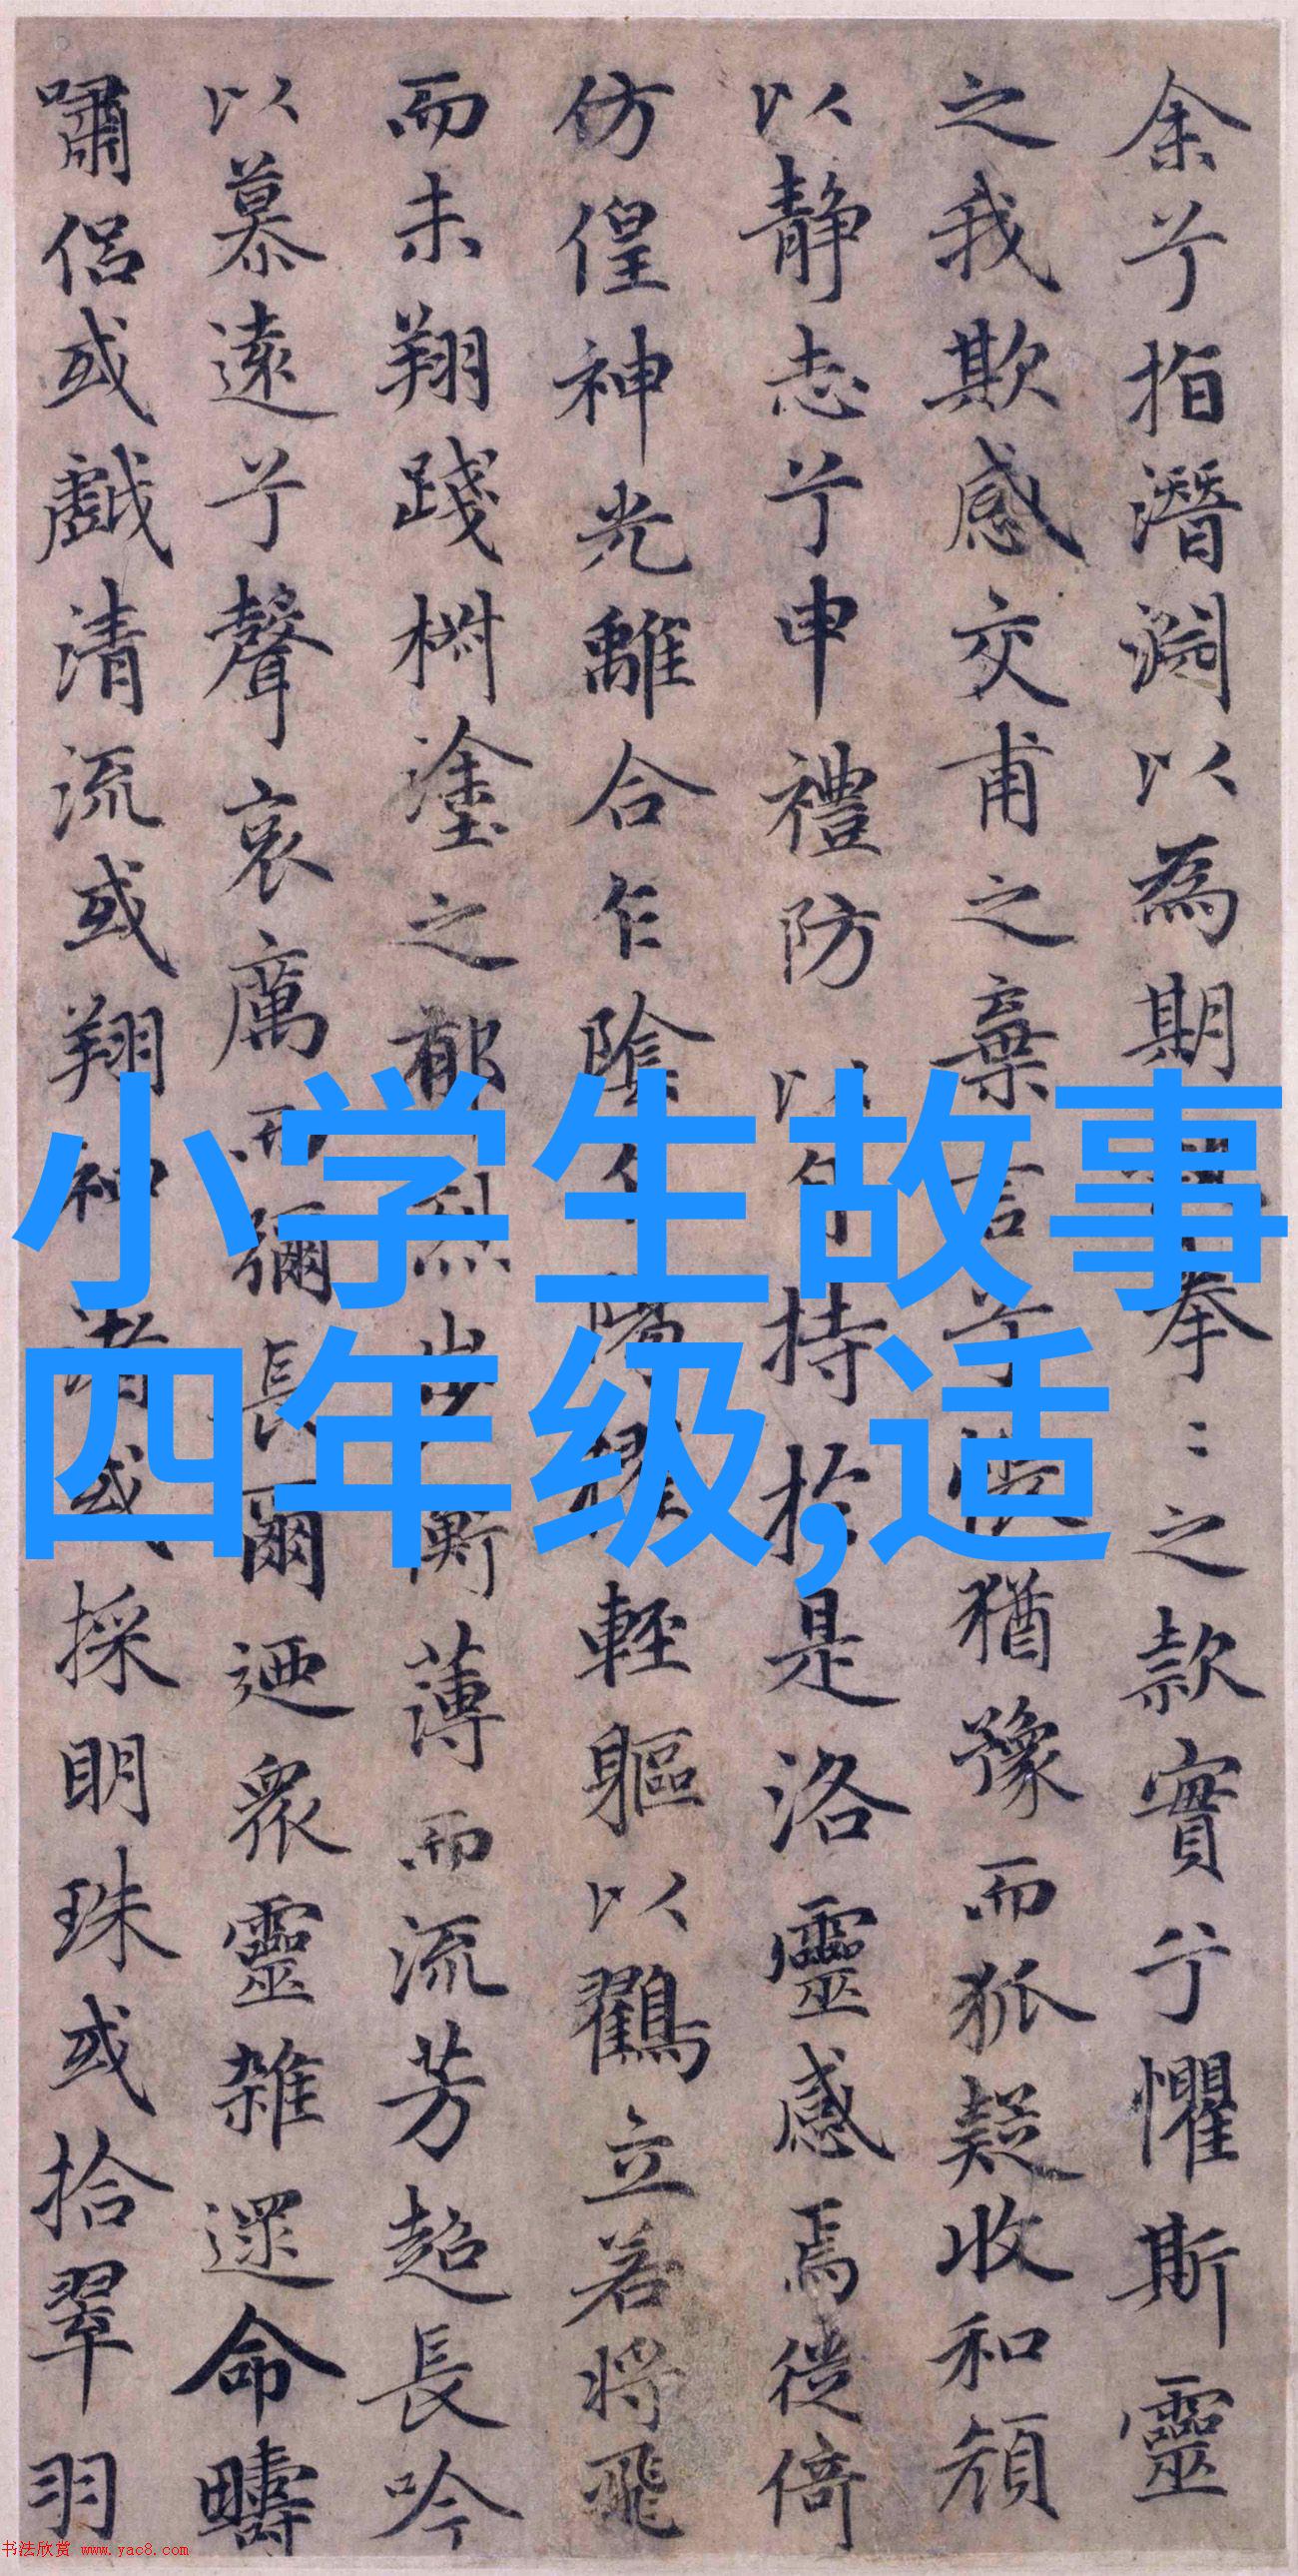 余兮指潛淵以為期執拳〻之款實兮懼斯靈
之我欺感交甫之棄言兮悵猶豫而狐疑收和顏
以静志兮申禮防以自持於是洛靈感焉徙倚
仿偟神光離合乍陰乍陽擢輕軀以鶴立若將飛
而未翔踐椒塗之郁烈步蘅薄而流芳超長吟
以慕遠兮聲哀厲而彌長爾迺衆靈雜遝命疇
嘯侣或戲清流或翔神渚或採明珠或拾翠羽
小学生故事
四年级,适
书法欣赏 www.yac8.com